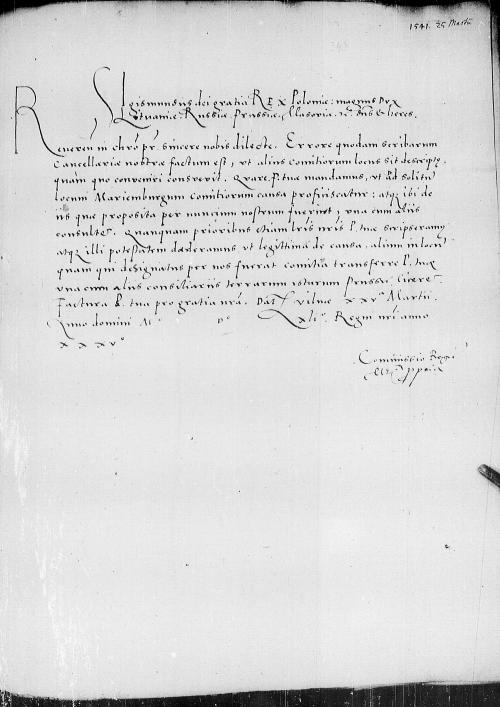 1541. 25 Martii
Sigismundus dei gratia REX Poloniæ: magnus Dux
Lituaniæ, Russiæ, Prussiæ, Masoviæ, etc. dns et heres.
Reveren in chro pr. sincere nobis dilecte. Errore quodam scribarum
Cancellariæ nostræ factum est, ut alius Comitiorum locus sit descriptq
quam quo conveniri consuevit. Quare P. tuæ mandamus, ut ad solitu
locum Marienburgum Comitiorum causa proficiscatur: atq ibi de
iis quæ proposita per nuncium nostrum fuerint, una cum aliis
consultet. Quanquam prioribus etiam lris nris P. tuæ scripseramq
atq illi potestatem dederamus ut legittima de causa, alium in locu
quam qui designatus per nos fuerat comitia transferre P. tua
una cum aliis consiliariis terrarum istarum Prussiæ liceret.
Factura P. tua pro gratia nra. Dat Vilnæ xxv Martii.
Anno domini Mo Do xlio Regni nri anno
xxxvo
Commissio Regiæ
Mtis ppria